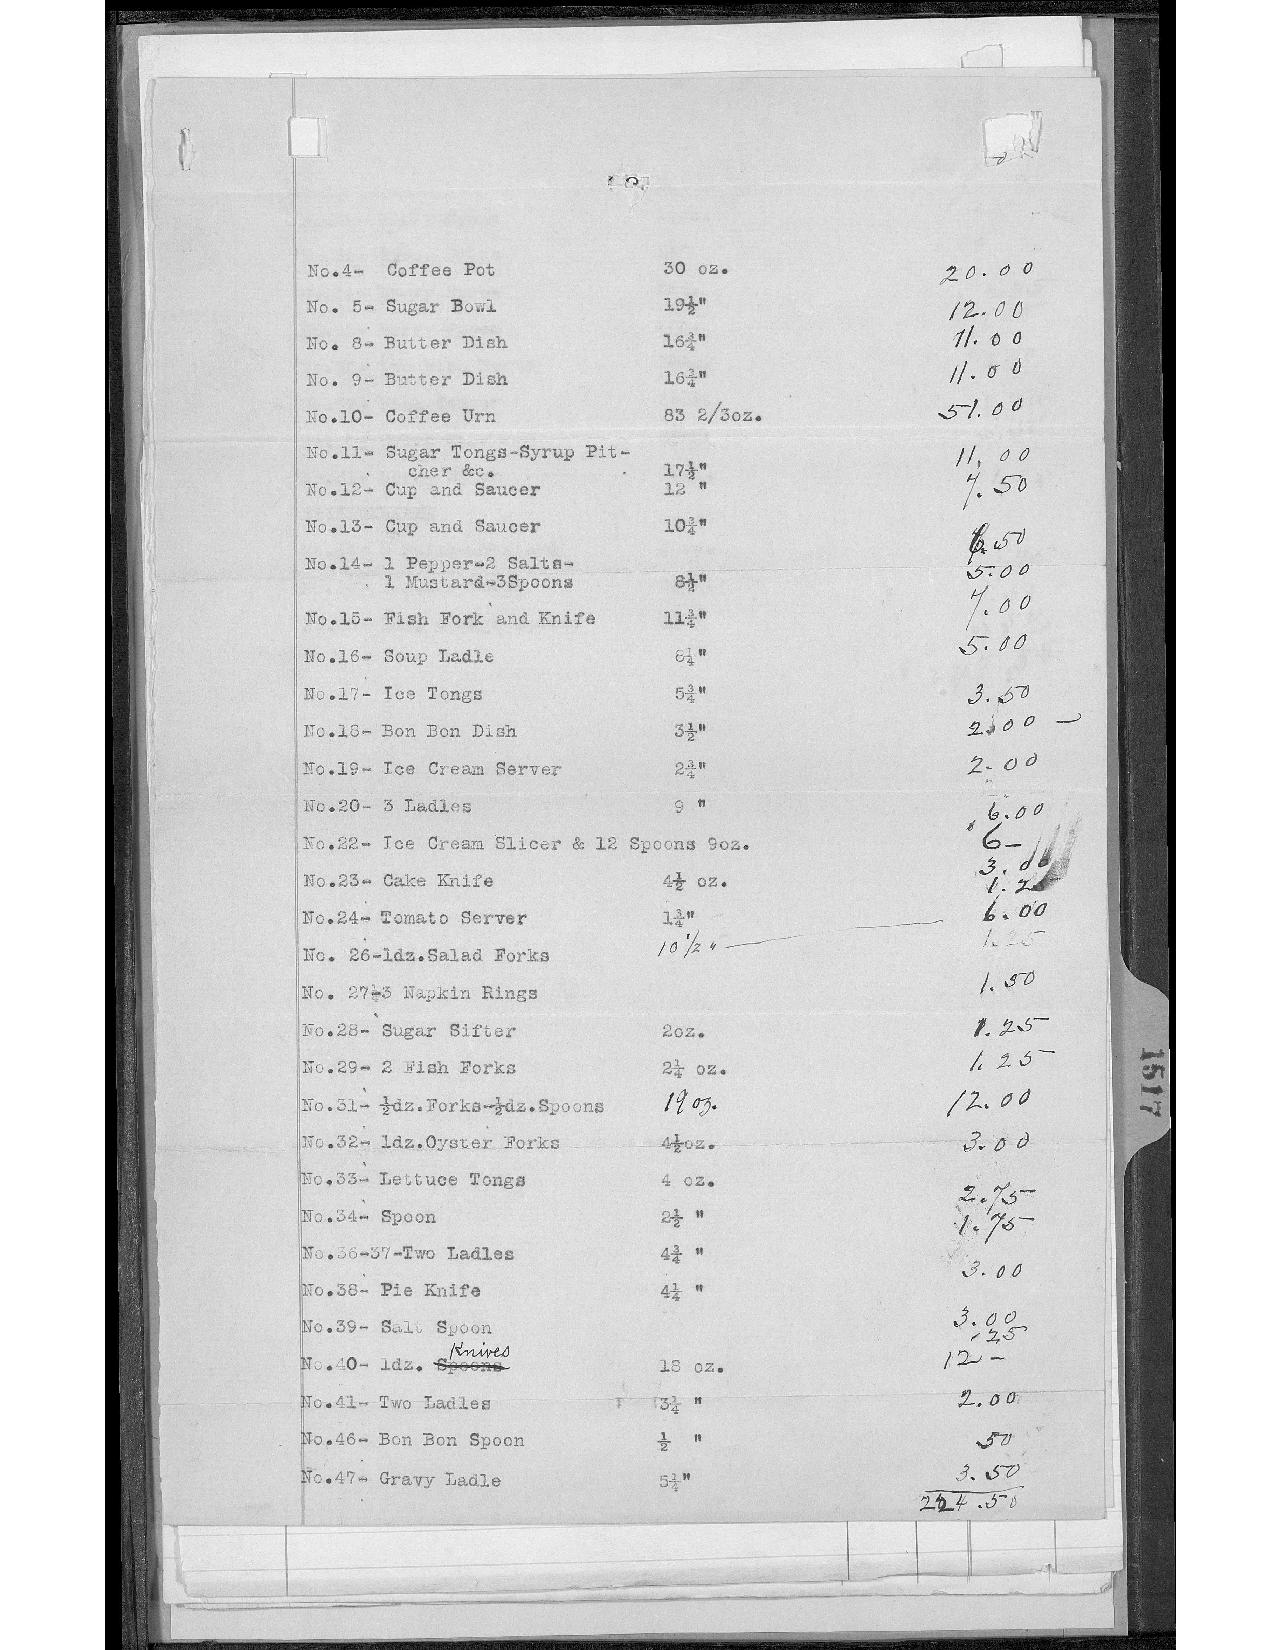 No.4- Coffee Pot 30 oz. 20.00
No. 5- Sugar Bowl 19½" 12.00
No. 8- Butter Dish 16¾" 11.00
No. 9- Butter Dish 16¾" 11.00
No.10- Coffee Urn 83 2/3oz. 51.00
No.11- Sugar Tongs-Syrup Pit- 11.00
cher &c. 17½"
No.12- Cup and Saucer 12 " 7.50
No.13- Cup and Saucer 10¾" 6.50
No.14- 1 Pepper-2 Salts- 5.00
1 Mustard-3Spoons 8½"
No.15- Fish Fork and Knife 11¾" 7.00
No.16- Soup Ladle 8¼" 5.00
No.17- Ice Tongs 5¾" 3.50
No.18- Bon Bon Dish 3½" 2.00 -
No.19- Ice Cream Server 2¾" 2.00
No.20- 3 Ladles 9 " 6.00
No.22- Ice Cream Slicer & 12 Spoons 9oz. 6-
No.23- Cake Knife 4½ oz. 3.00
No.24- Tomato Server 1¾" 1.2
6.00
No. 26-1dz.Salad Forks 10 1/2 " 1.25
No. 27-3 Napkin Rings 1.50
No.28- Sugar Sifter 2oz. 1.25
No.29- 2 Fish Forks 2¼ oz. 1.25
No.31- ½dz.Forks-½dz.Spoons 19 oz. 12.00
No.32- 1dz.Oyster Forks 4½oz. 3.00
No.33- Lettuce Tongs 4 oz. 2.75
No.34- Spoon 2½ " 1.75
No.36-37-Two Ladles 4¾ " 3.00
No.38- Pie Knife 4¼ " 3.00
No.39- Salt Spoon .25
Knives
No.40- 1dz. Spoons 18 oz. 12-
No.41- Two Ladles 3¼ " 2.00
No.46- Bon Bon Spoon ½ " 50
No.47- Gravy Ladle 5¼" 3.50
224.50
1517